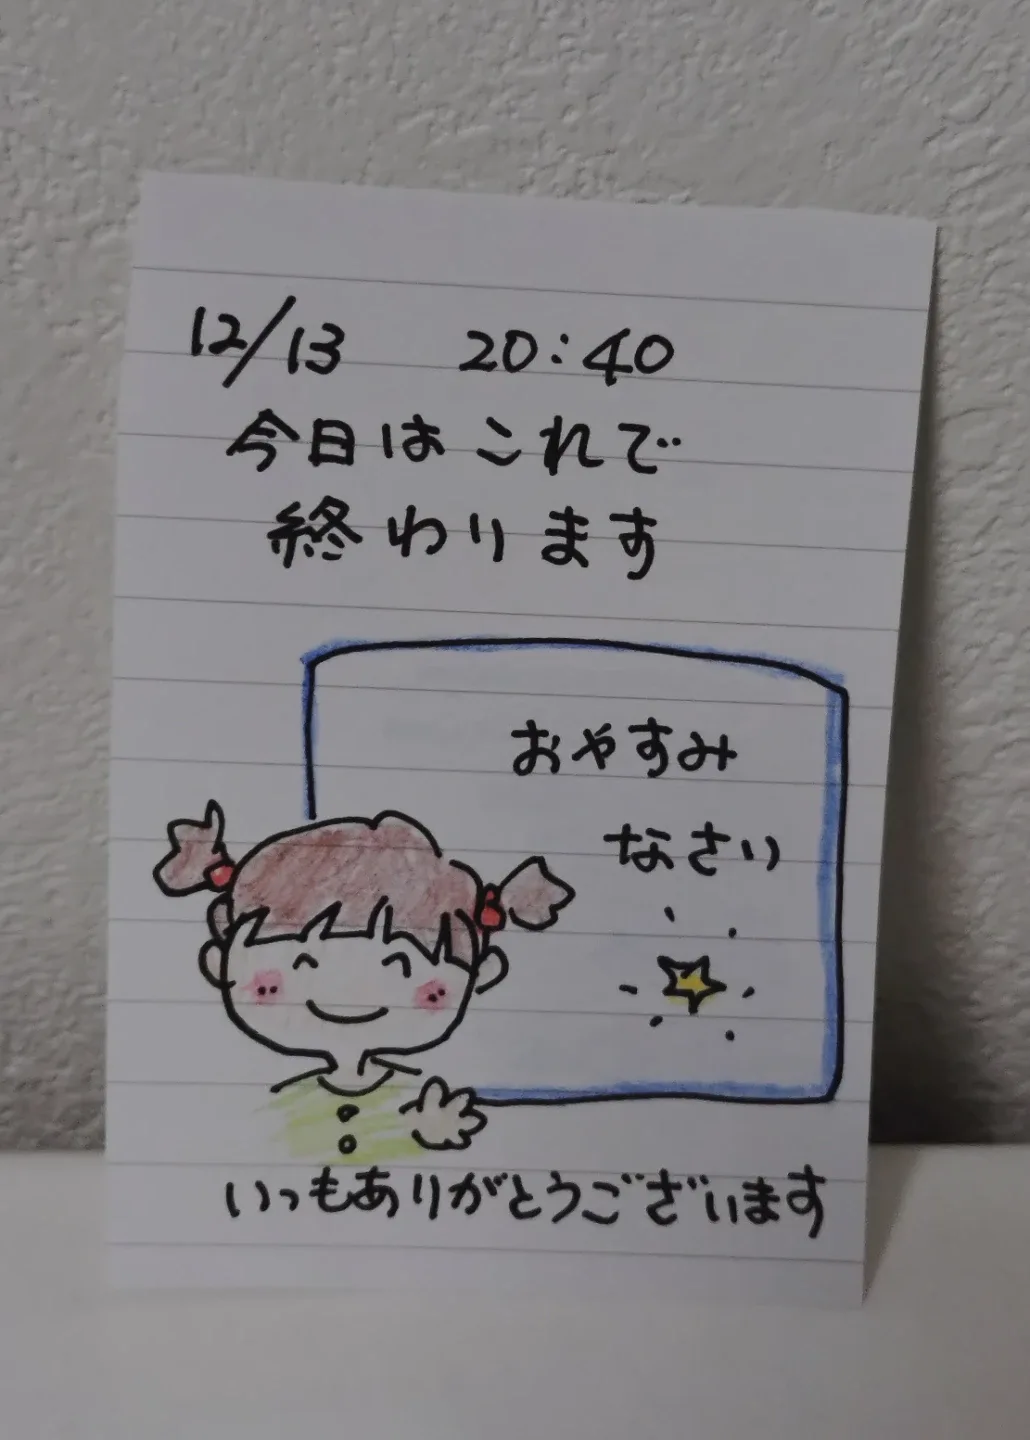 12/13 20:40
今日はこれで
終わります
おやすみ
なさい
いつもありがとうございます